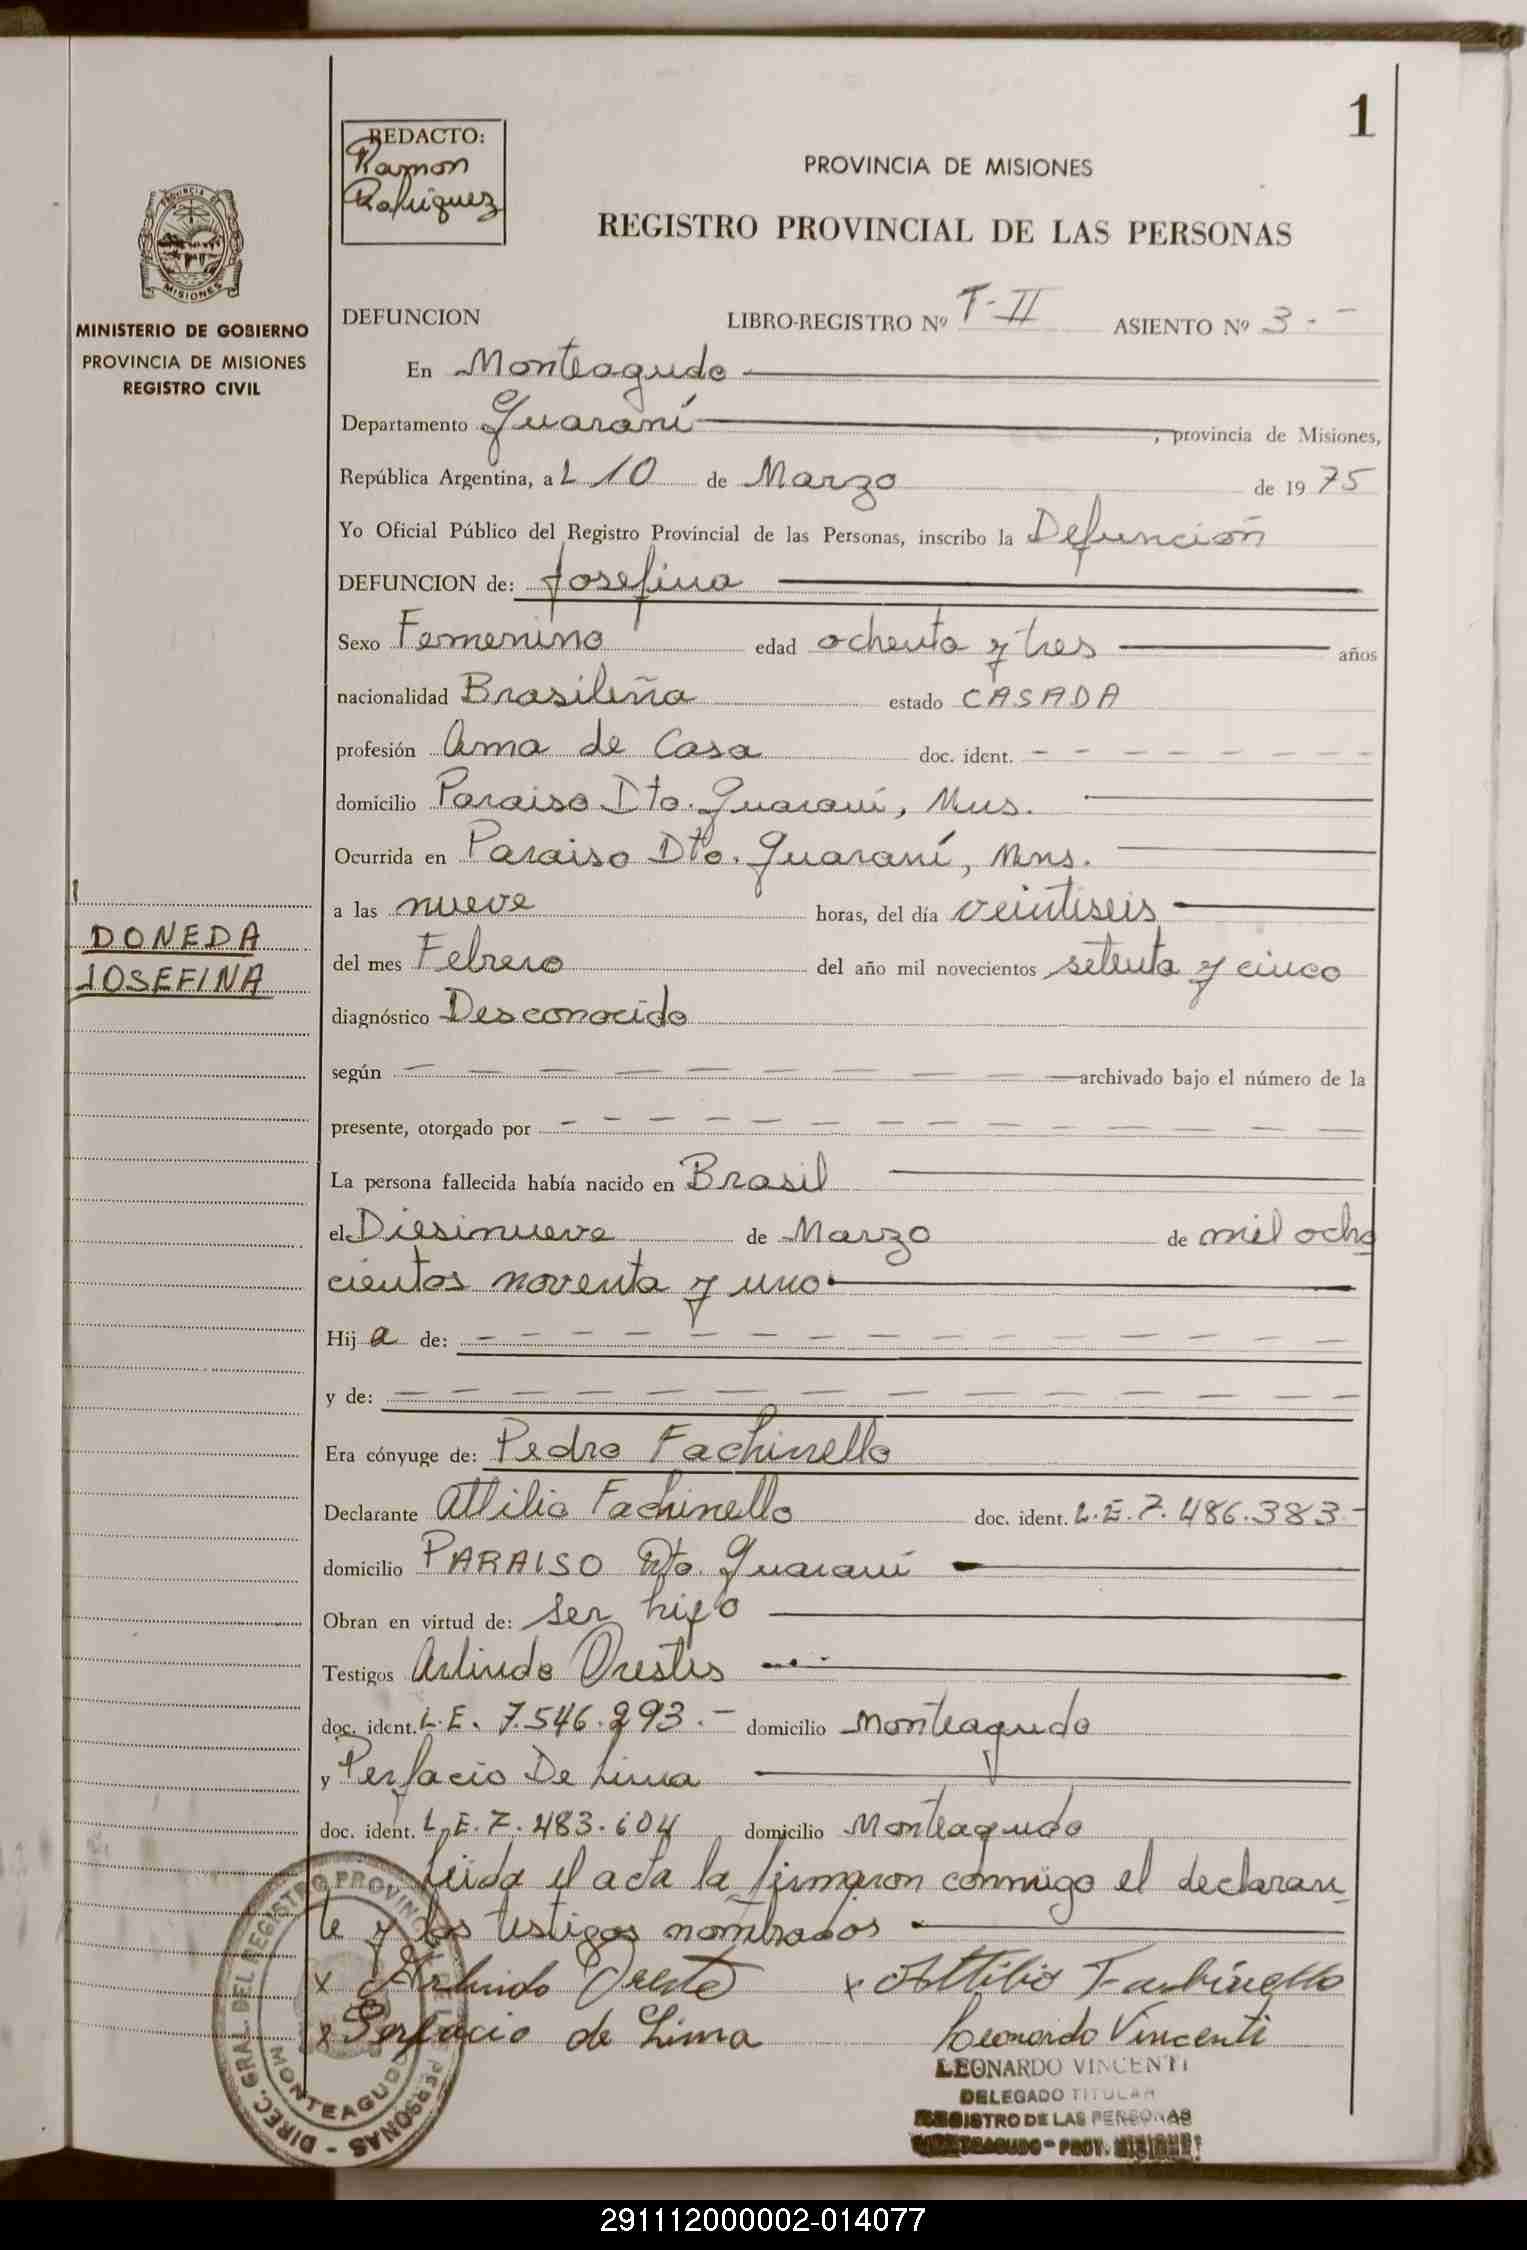 1
REDACTO:
Ramon
Rodriguez
PROVINCIA DE MISIONES
REGISTRO PROVINCIAL DE LAS PERSONAS
PROVINCIA DE
MISIONES
MINISTERIO DE GOBIERNO
PROVINCIA DE MISIONES
REGISTRO CIVIL
DEFUNCION LIBRO-REGISTRO Nº T-II ASIENTO Nº 3.-
En Monteagudo
Departamento Guaraní, provincia de Misiones,
República Argentina, a L 10 de Marzo de 1975
Yo Oficial Público del Registro Provincial de las Personas, inscribo la Defunción
DEFUNCION de: Josefina
Sexo Femenino edad ochenta y tres años
nacionalidad Brasileña estado CASADA
profesión Ama de Casa doc. ident. - - - - - - - -
domicilio Paraiso Dto. Guaraní, Mns.
Ocurrida en Paraiso Dto. Guaraní, Mns.
a las nueve horas, del día veintiseis
DONEDA
JOSEFINA
del mes Febrero del año mil novecientos setenta y cinco
diagnóstico Desconocido
según - - - - - - - - - archivado bajo el número de la
presente, otorgado por - - - - - - - - - - - - - -
La persona fallecida había nacido en Brasil
el Diesinueve de Marzo de mil ocho
cientos noventa y uno
Hij a de: - - - - - - - - - - - - - - -
y de: - - - - - - - - - - - - - - - -
Era cónyuge de: Pedro Fachinello
Declarante Attilio Fachinello doc. ident. L.E. 7.486.383-
domicilio PARAISO Dto. Guaraní
Obran en virtud de: ser hijo
Testigos Arlindo Orestes
doc. ident. L.E. 7.546.293.- domicilio Monteagudo
y Perfacio De Lima
doc. ident. L.E. 7.483.604 domicilio Monteagudo
Leida el acta la firmaron conmigo el declaran-
te y los testigos nombrados
x Arlindo Oreste x Attilio Fachinello
x Perfacio de Lima Leonardo Vincenti
LEONARDO VINCENTI
DELEGADO TITULAR
REGISTRO DE LAS PERSONAS
MONTEAGUDO - PROV. MISIONES
DIREC. GRAL. DEL REGISTRO PROVINCIAL DE LAS PERSONAS -
MONTEAGUDO
291112000002-014077